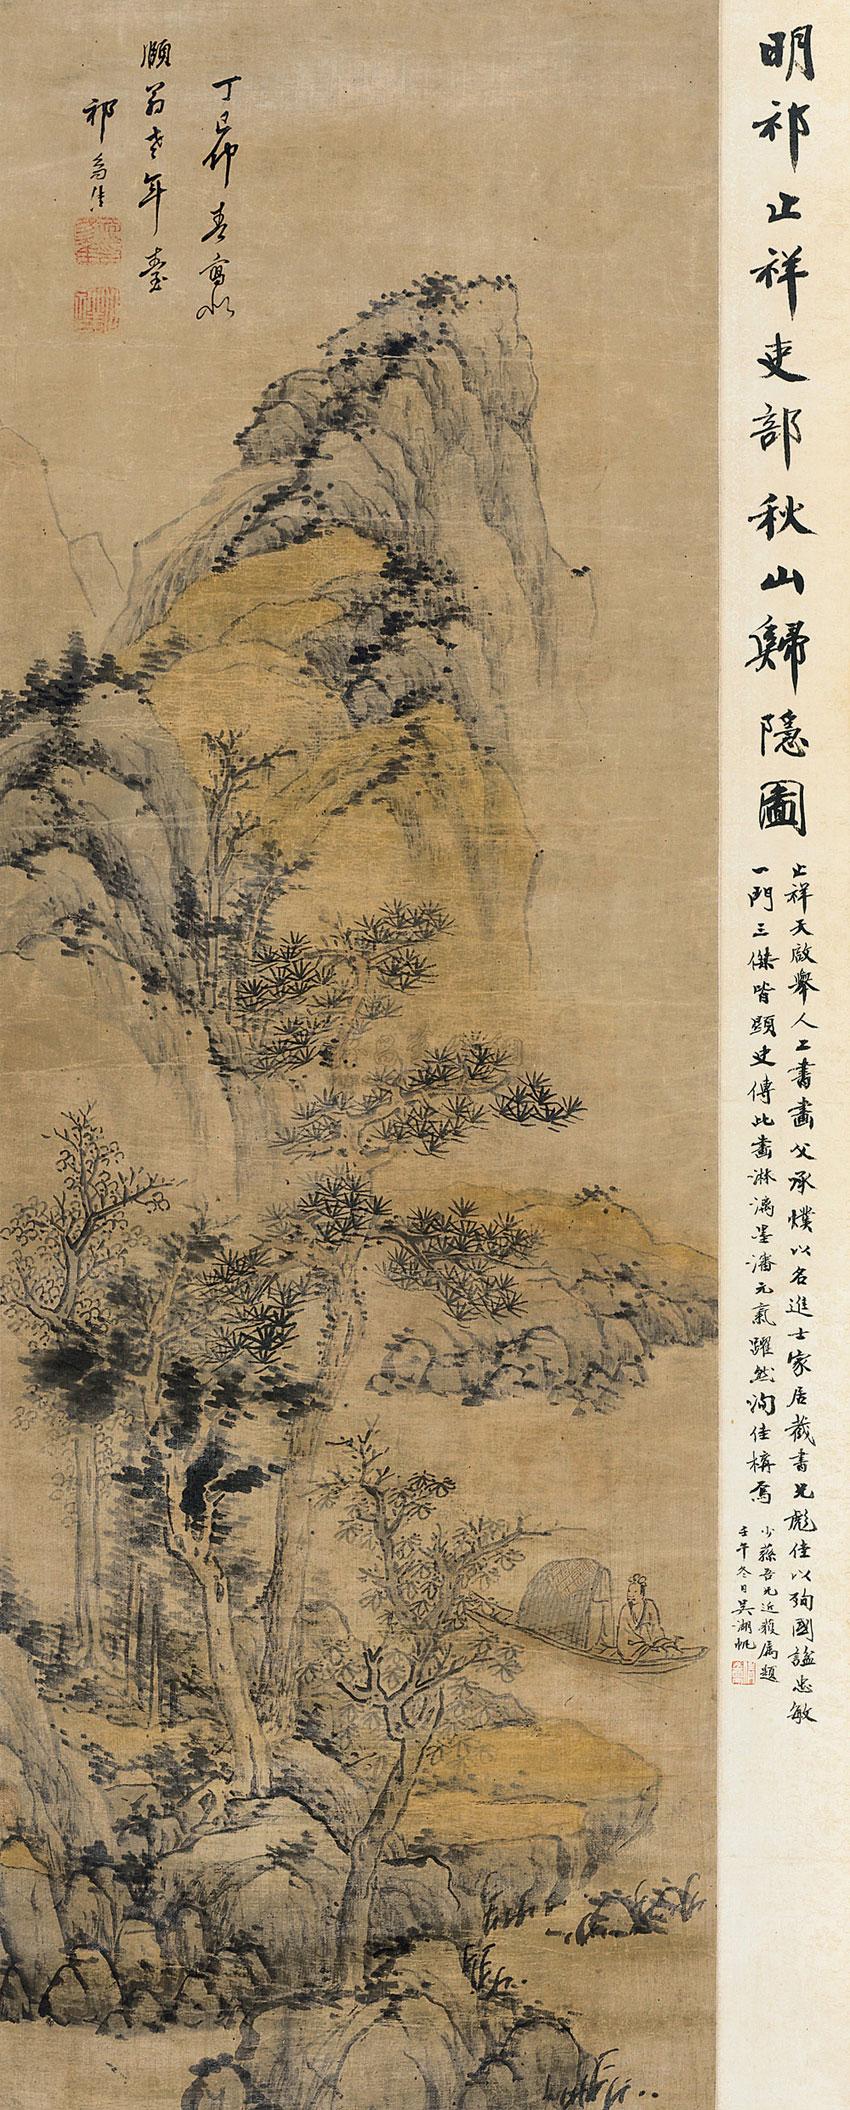 明祁止祥吏部秋山歸隱圖
止祥天啟舉人工書畫父承㸁以名進士家居藏書兄彪佳以殉國謚忠敏
一門三傑皆顯史傳此畫淋漓墨瀋元氣躍然洵佳構焉
少蓀吾兄近獲屬題
壬午冬日吳湖帆
丁卯春寫似
頤翁老年臺
祁豸佳